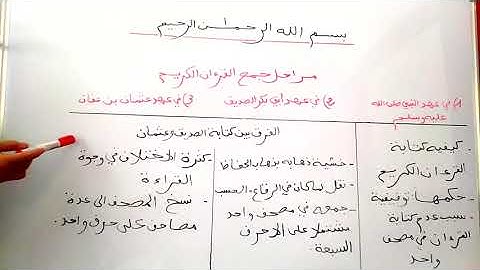 بسم الله الرحمان الرحيم
مراحل جمع القرءان الكريم
1) في عهد النبي صلى الله
عليه وسلم
2) في عهد أبي بكر الصديق
3) في عهد عثمان بن عفان
- كيفية كتابة
القرءان الكريم
- حكمها توقيفية
- سبب عدم كتابة
القرءان في مصحف
واحد
الفرق بين كتابة الصديق وعثمان
- خشية ذهابه بذهاب الحفاظ
- نقل لما كان في الرقاع، العسب
- جمعه في مصحف واحد
مشتملا على الأحرف
السبعة.
- كثرة الاختلاف في وجوه
القراءة
- نسخ المصحف الى عدة
مصاحف على حرف واحد.